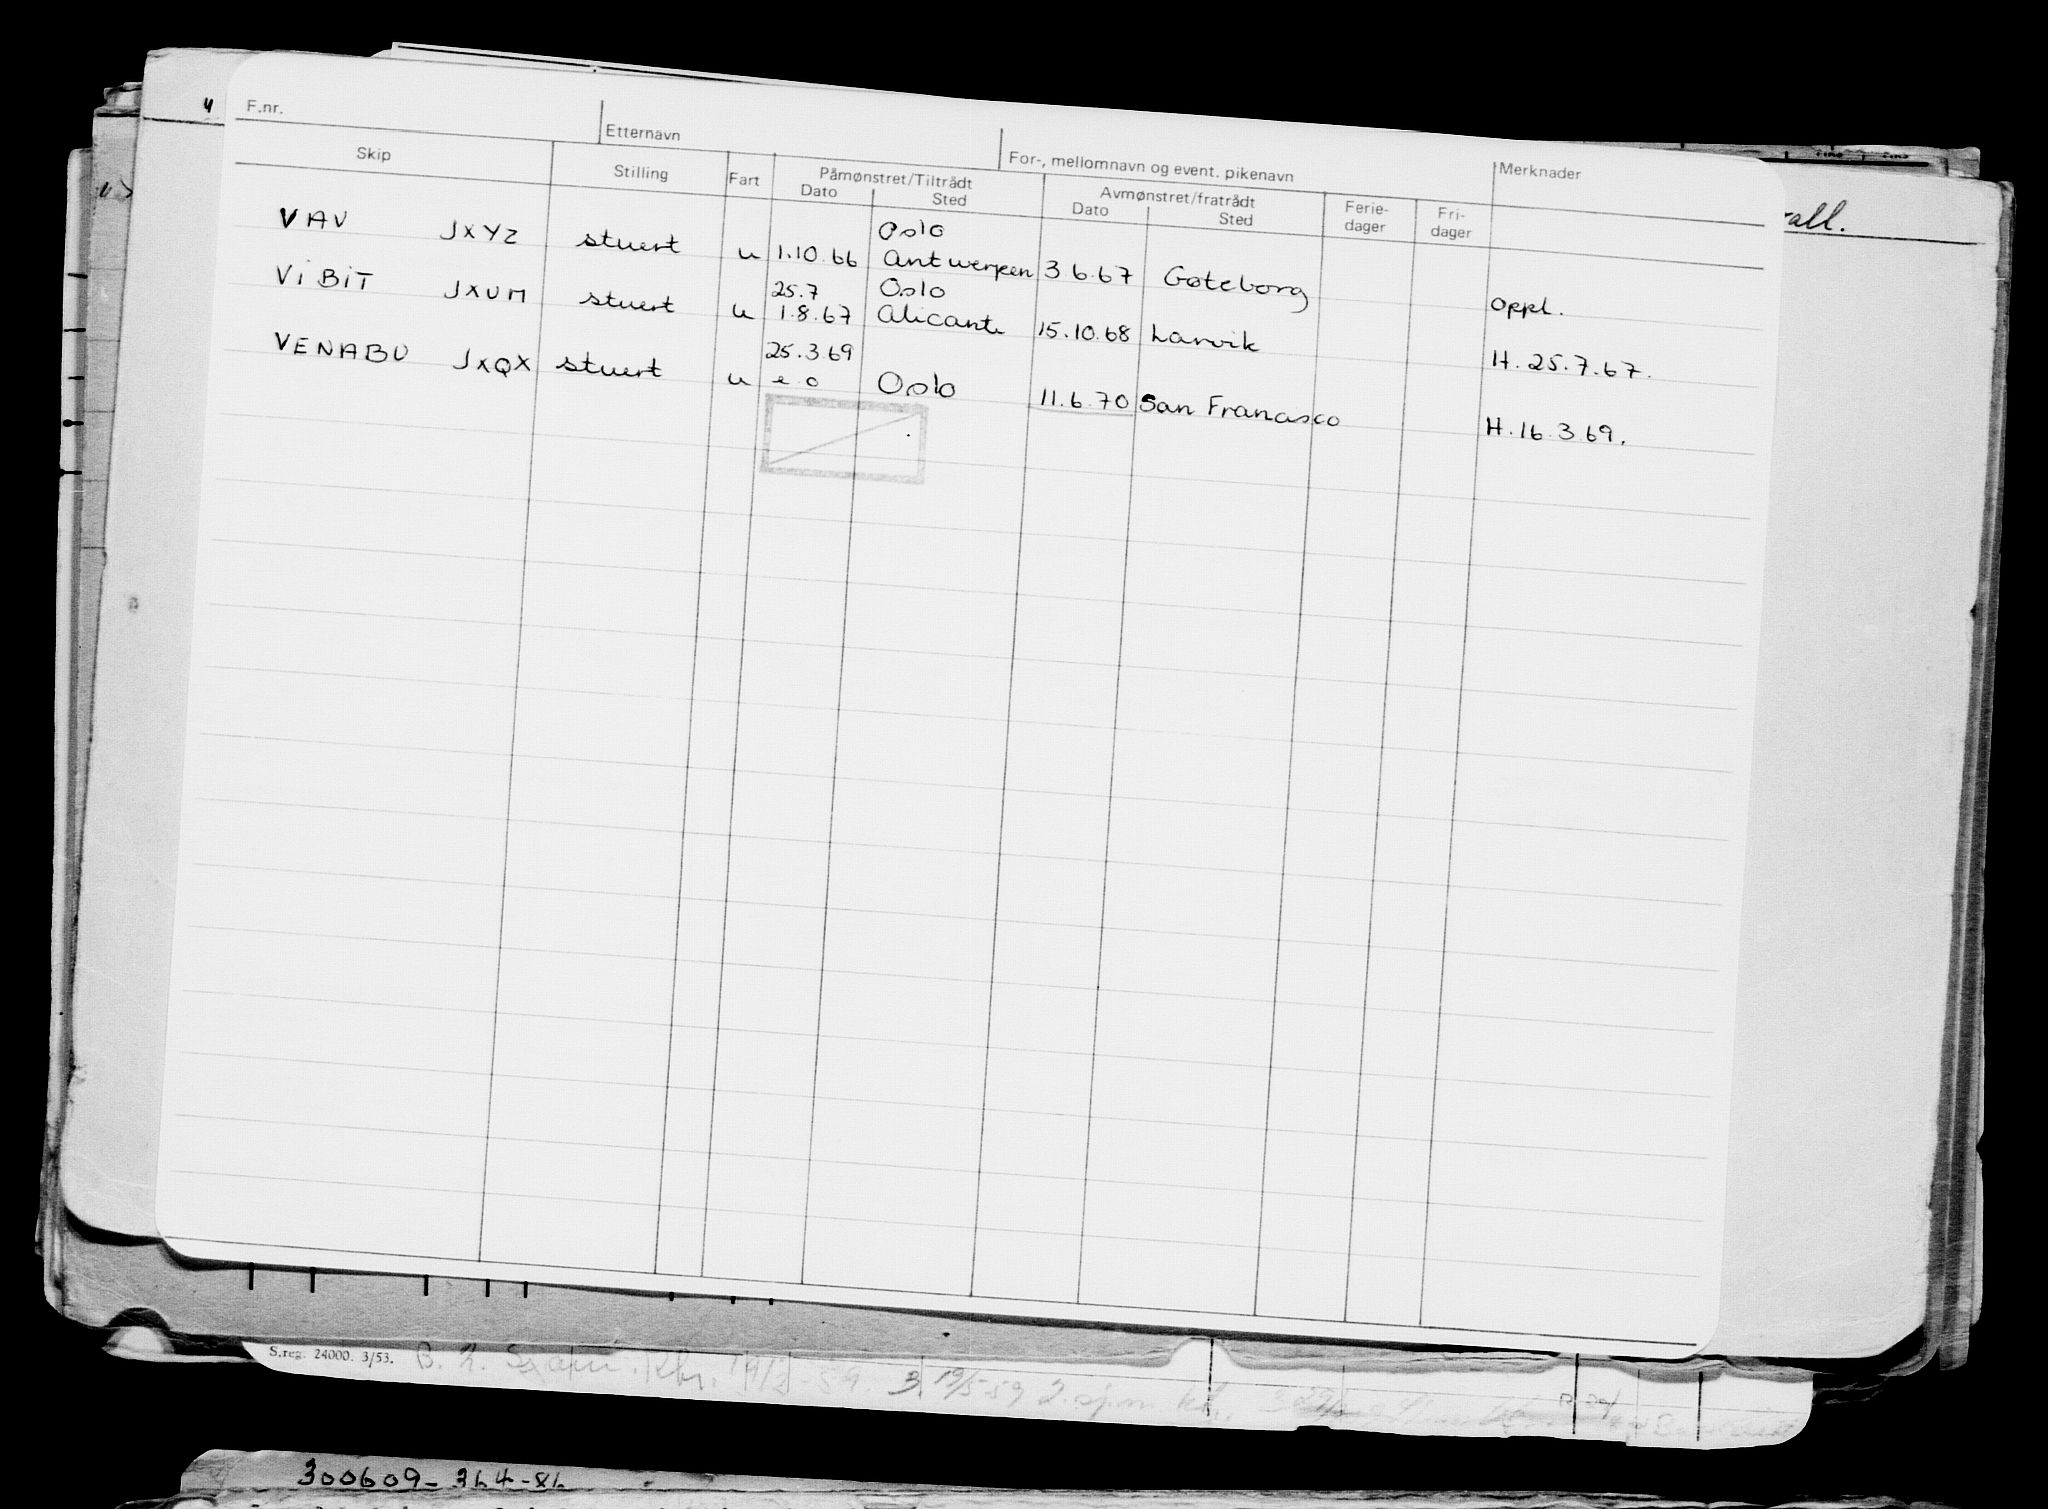 F.nr. Etternavn For-, mellomnavn og event. pikenavn Merknader
Skip Stilling Fart Påmønstret/Tiltrådt Avmønstret/fratrådt Ferie- Fri-
Dato Sted Dato Sted dager dager
all.
Oslo
VAV JXYZ stuert u 1.10.66 Antwerpen 3.6.67 Gøteborg Oppl.
25.7 Oslo
ViBiT JXUM stuert u 1.8.67 Alicante 15.10.68 Larvik H.25.7.67.
25.3.69
VENABU JXQX stuert u e.o Oslo 11.6.70 San Francisco H.16.3.69.
S.reg. 24000. 3/53.
3 19/5-59
300609-364-86